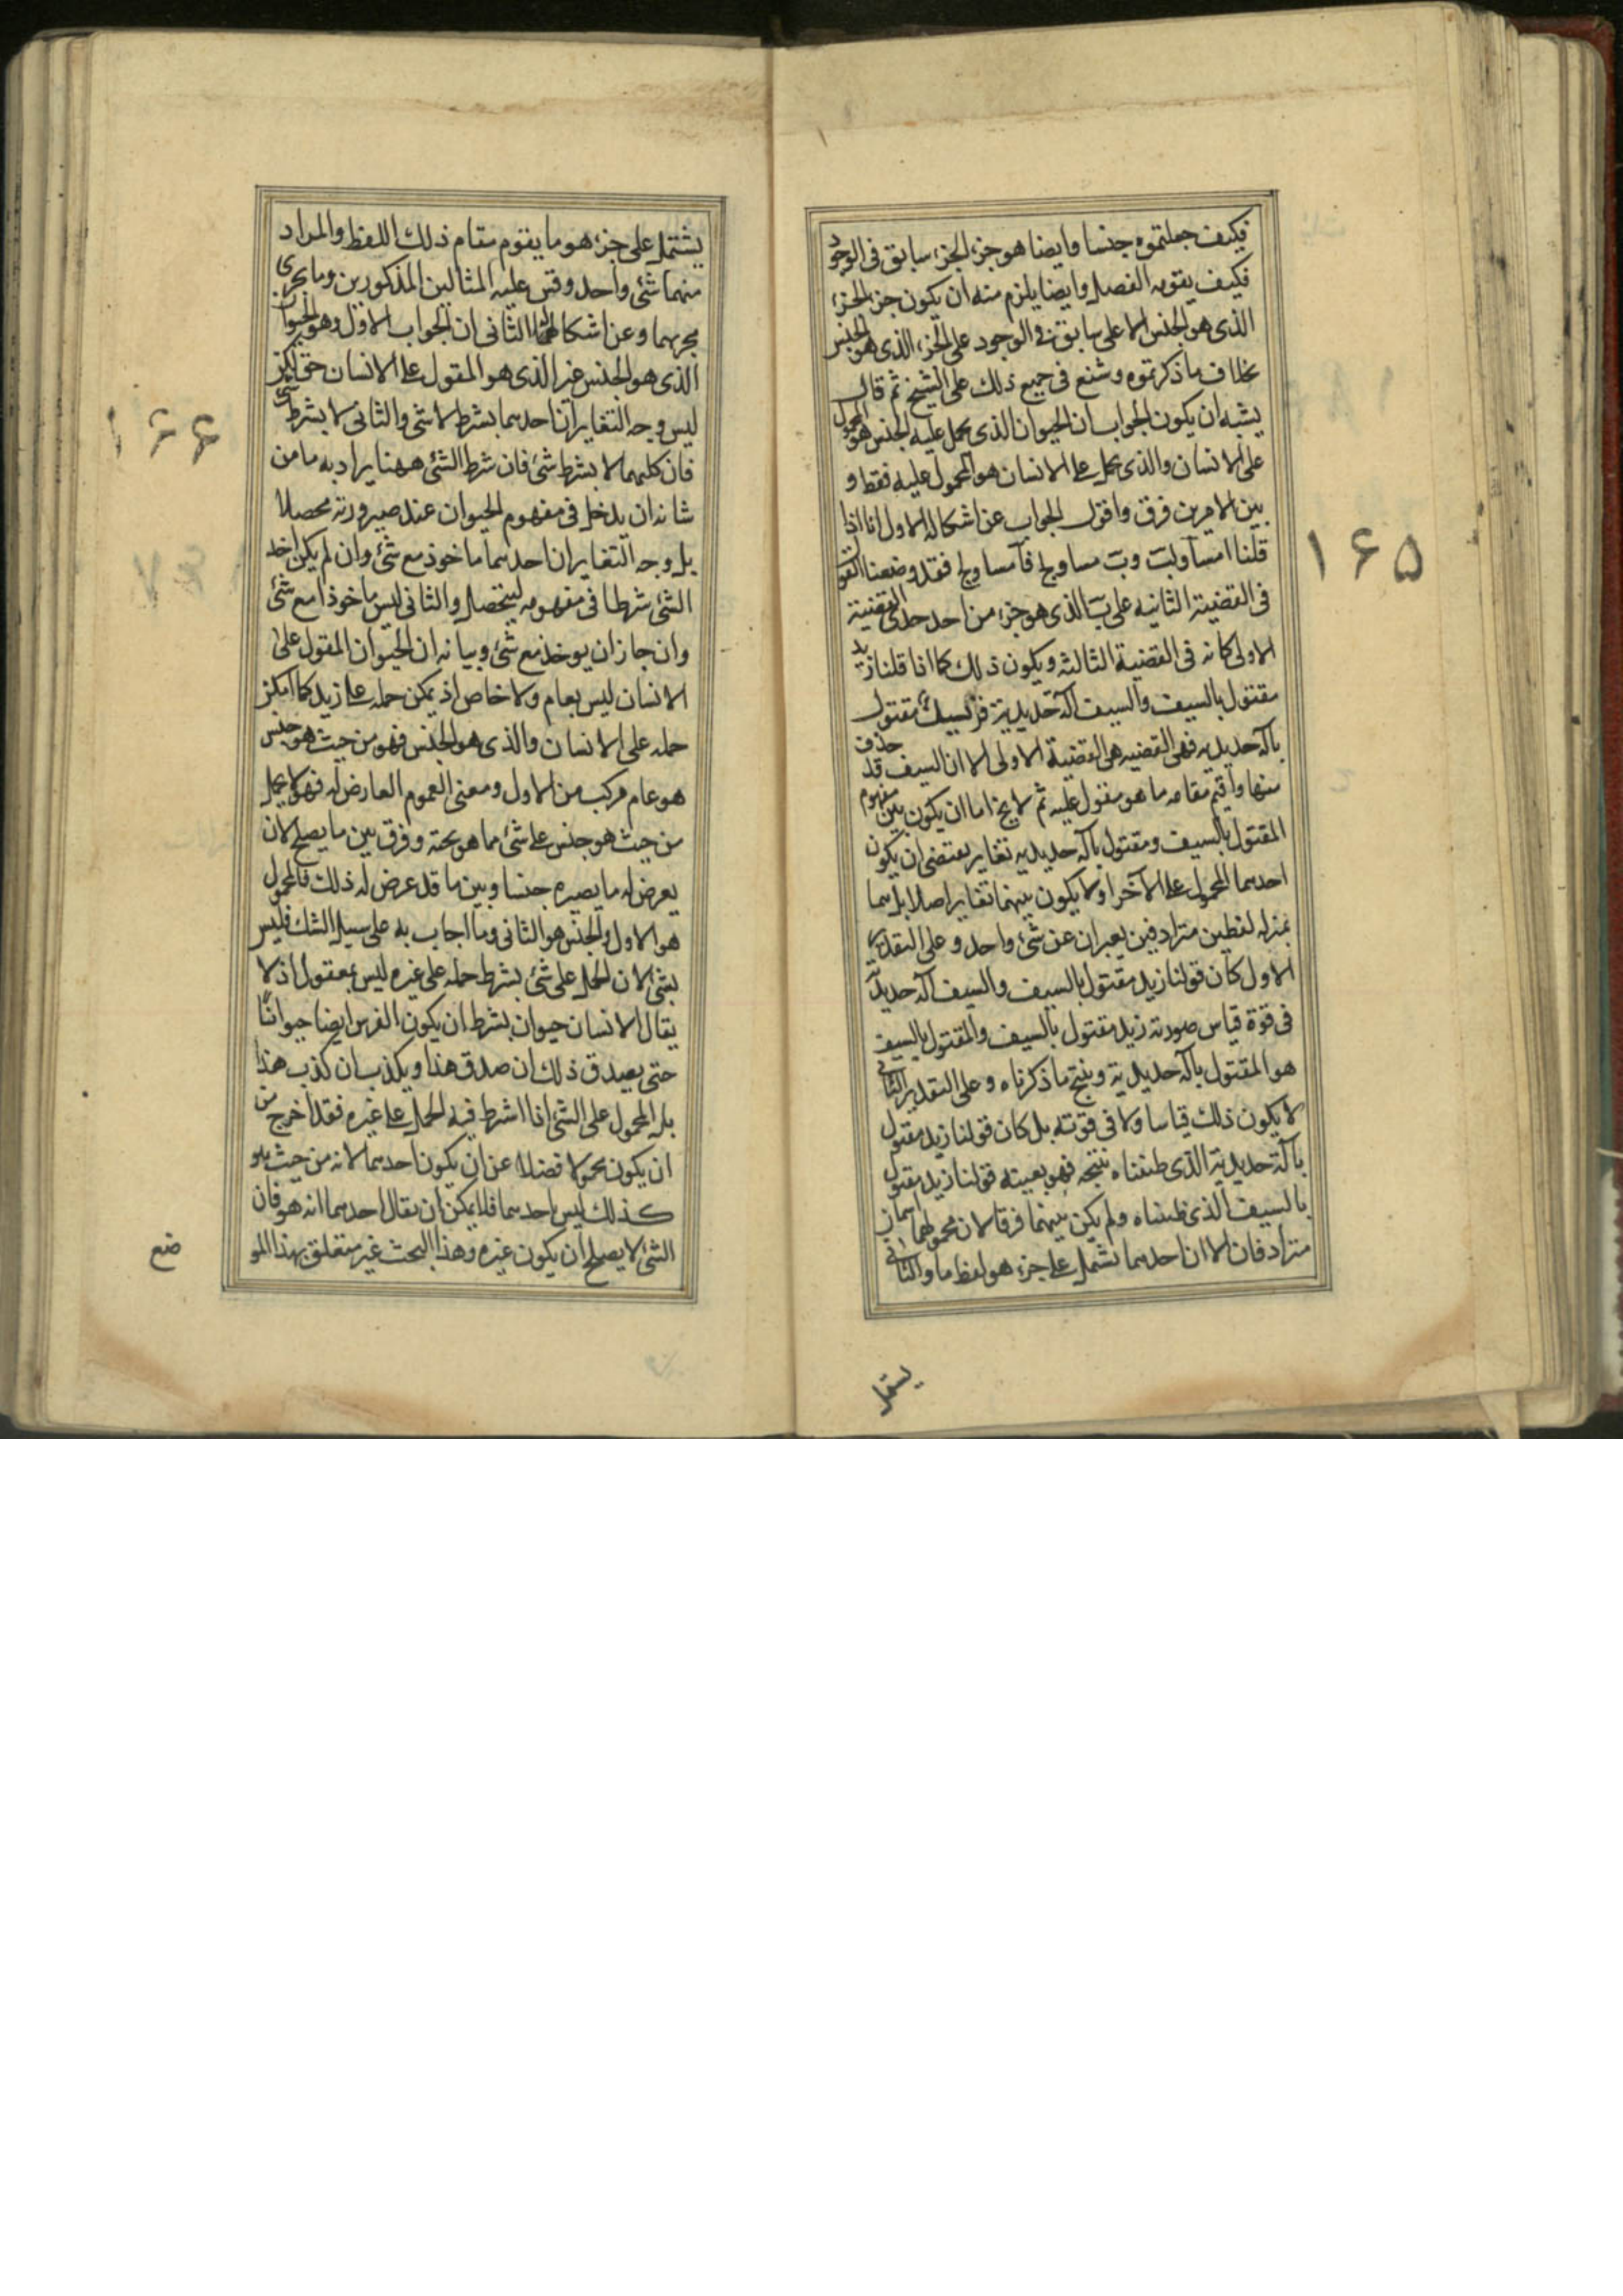 فكيف جعلتموه جنسا وايضا هو جزء الجزء سابق فى الوجود
فكيف يقومه الفصل وايضا يلزم منه ان يكون جزء الجزء
الذى هو الجنس الاعلى سابق فى الوجود على الجزء الذى هو الجنس
بخلاف ما ذكرتموه وشنع فى جميع ذلك على الشيخ ثم قال
يشبه ان يكون الجواب ان الحيوان الذى يحمل عليه الجنس هو المحمول
على الانسان والذى يحمل على الانسان هو المحمول عليه فقط و
بين الامرين فرق واقول الجواب عن اشكاله الاول انا اذا
قلنا ا مساو لب وب مساو لج فآ مساو لج فقد وضعنا
فى القضية الثانيه على ب الذى هو جزء من احد حدى القضية
الاولى كانه فى القضية الثالثه ويكون ذلك كما اذا قلنا زيد
مقتول بالسيف والسيف آلة حديدية فزيد مقتول
بآلة حديديه فهى القضيه هى القضية الاولى الا ان السيف قد حذف
منها واقيم مقامه ما هو مقول عليه ثم لا يخ اما ان يكون بين مفهوم
المقتول بالسيف ومقتول بآلة حديديه تغاير يقتضى ان يكون
احدهما المحمول على الآخر او لا يكون بينهما تغاير اصلا بل هما
بمنزله لفظين مترادفين يعبران عن شئ واحد وعلى التقدير
الاول كان قولنا زيد مقتول بالسيف والسيف آلة حديدية
فى قوة قياس صورته زيد مقتول بالسيف والمقتول بالسيف
هو المقتول بآلة حديدية وينتج ما ذكرناه وعلى التقدير الثانى
لا يكون ذلك قياسا ولا فى قوته بل كان قولنا زيد مقتول
بآلة حديدية الذى ظنناه نتيجه فهو بعينه قولنا زيد مقتول
بالسيف الذى ظنناه ولم يكن بينهما فرق لان محموليهما اسمان
مترادفان الا ان احدهما تشمل على جزء هو لفظ ما والثانى
يشتمل
۱۶۵
يشتمل على جزء هو ما يقوم مقام ذلك اللفظ والمراد
منهما شئ واحد وقس عليه المثالين المذكورين وما يجرى
مجريهما وعن اشكاله الثانى ان الجواب الاول وهو الحيوان
الذى هو الجنس غير الذى هو المقول على الانسان حق لكن
ليس وجه التغاير ان احدهما بشرط لا شئ والثانى لا بشرط شئ
فان كليهما لا بشرط شئ فان شرط الشئ ههنا يراد به ما من
شانه ان يدخل فى مفهوم الحيوان عند صيرورته محصلا
بل وجه التغاير ان احدهما ماخوذ مع شئ وان لم يكن اخذ
الشئ شرطا فى مفهومه ليتحصل والثانى ليس ماخوذا مع شئ
وان جاز ان يوخذ مع شئ وبيانه ان الحيوان المقول على
الانسان ليس بعام ولا خاص اذ يمكن حمله على زيد كما امكن
حمله على الانسان والذى هو الجنس فهو من حيث هو جنس
هو عام مركب من الاول ومعنى العموم العارض له فهو لا يحمل
من حيث هو جنس على شئ مما هو تحته وفرق بين ما يصلح لان
يعرض له ما يصيره جنسا وبين ما قد عرض له ذلك فالمحمول
هو الاول والجنس هو الثانى وما اجاب به على سبيل الشك فليس
بشئ لان الحمل على شئ بشرط حمله على غيره ليس بمعقول اذ لا
يقال الانسان حيوان بشرط ان يكون الفرس ايضا حيوانًا
حتى يصدق ذلك ان صدق هذا ويكذب ان كذب هذا
بل المحمول على الشئ اذا اشرط فيه الحمل على غيره فقد اخرج من
ان يكون محمولا فضلا عن ان يكون احدهما لانه من حيث هو
كذلك ليس احدهما فلا يمكن ان يقال احدهما انه هو فان
الشئ لا يصلح ان يكون غيره وهذا البحث غير متعلق بهذا المو
ضع
۱۶۶